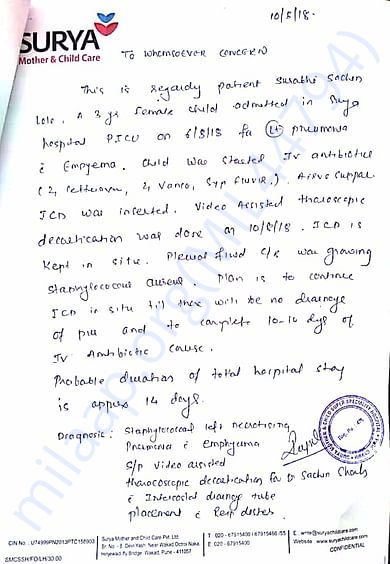 SURYA
Mother & Child Care
10/5/18.
TO WHOMSOEVER CONCERN
This is regardy patient Surabhi Sachin
Lole. A 3 yr female child admitted in Surya
hospital PICU on 6/5/18 for (Lt) pneumonia
c̄ Empyema. Child was started IV antibiotic
(2, 2, Vanco, Syp FLUVIR.)
ICD was inserted. Video Assisted thoracoscopic
decortication was done on 10/5/18. ICD is
kept in situ. Pleural fluid c/s was growing
Staphylococcus aureus. Plan is to continue
ICD in situ till there will be no drainage
of pus and to complete 10-14 days of
IV Antibiotic course.
Probable duration of total hospital stay
is approx 14 days.
Diagnosis: Staphylococcal left necrotising
Pneumonia c̄ emphyema
S/p video assisted
thoracoscopic decortication for Dr Sachin Shah
c̄ Intercostal drainage tube
placement &
milaap.org(MIL44794)
CIN No.: U74999PN2013PTC158903
Surya Mother and Child Care Pvt. Ltd.
Sr. No. - 8, Devi Yash, Near Wakad Datta Naka,
Hinjewadi Fly Bridge, Wakad, Pune - 411057
T 020 - 67915400 / 67915466 /55
F 020 - 67915400
E : wrrte@suryachildcare.com
Website : www.suryachildcare.com
CONFIDENTIAL
SMCSSH/FO/LH/30.00